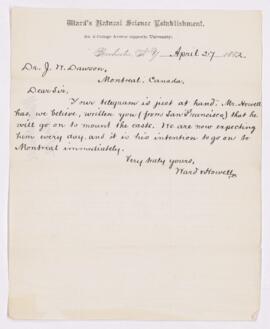 Ward's Natural Science Establishment.
No. 2 College Avenue opposite University.
Rochester, N.Y. April 27 1882
Dr. J. W. Dawson,
Montreal, Canada.
Dear Sir,
Your telegram is just at hand. Mr. Howell
has, we believe, written you (from San Francisco) that he
will go on to mount the casts. We are now expecting
him every day, and it is his intention to go on to
Montreal immediately.
Very truly yours,
Ward & Howell